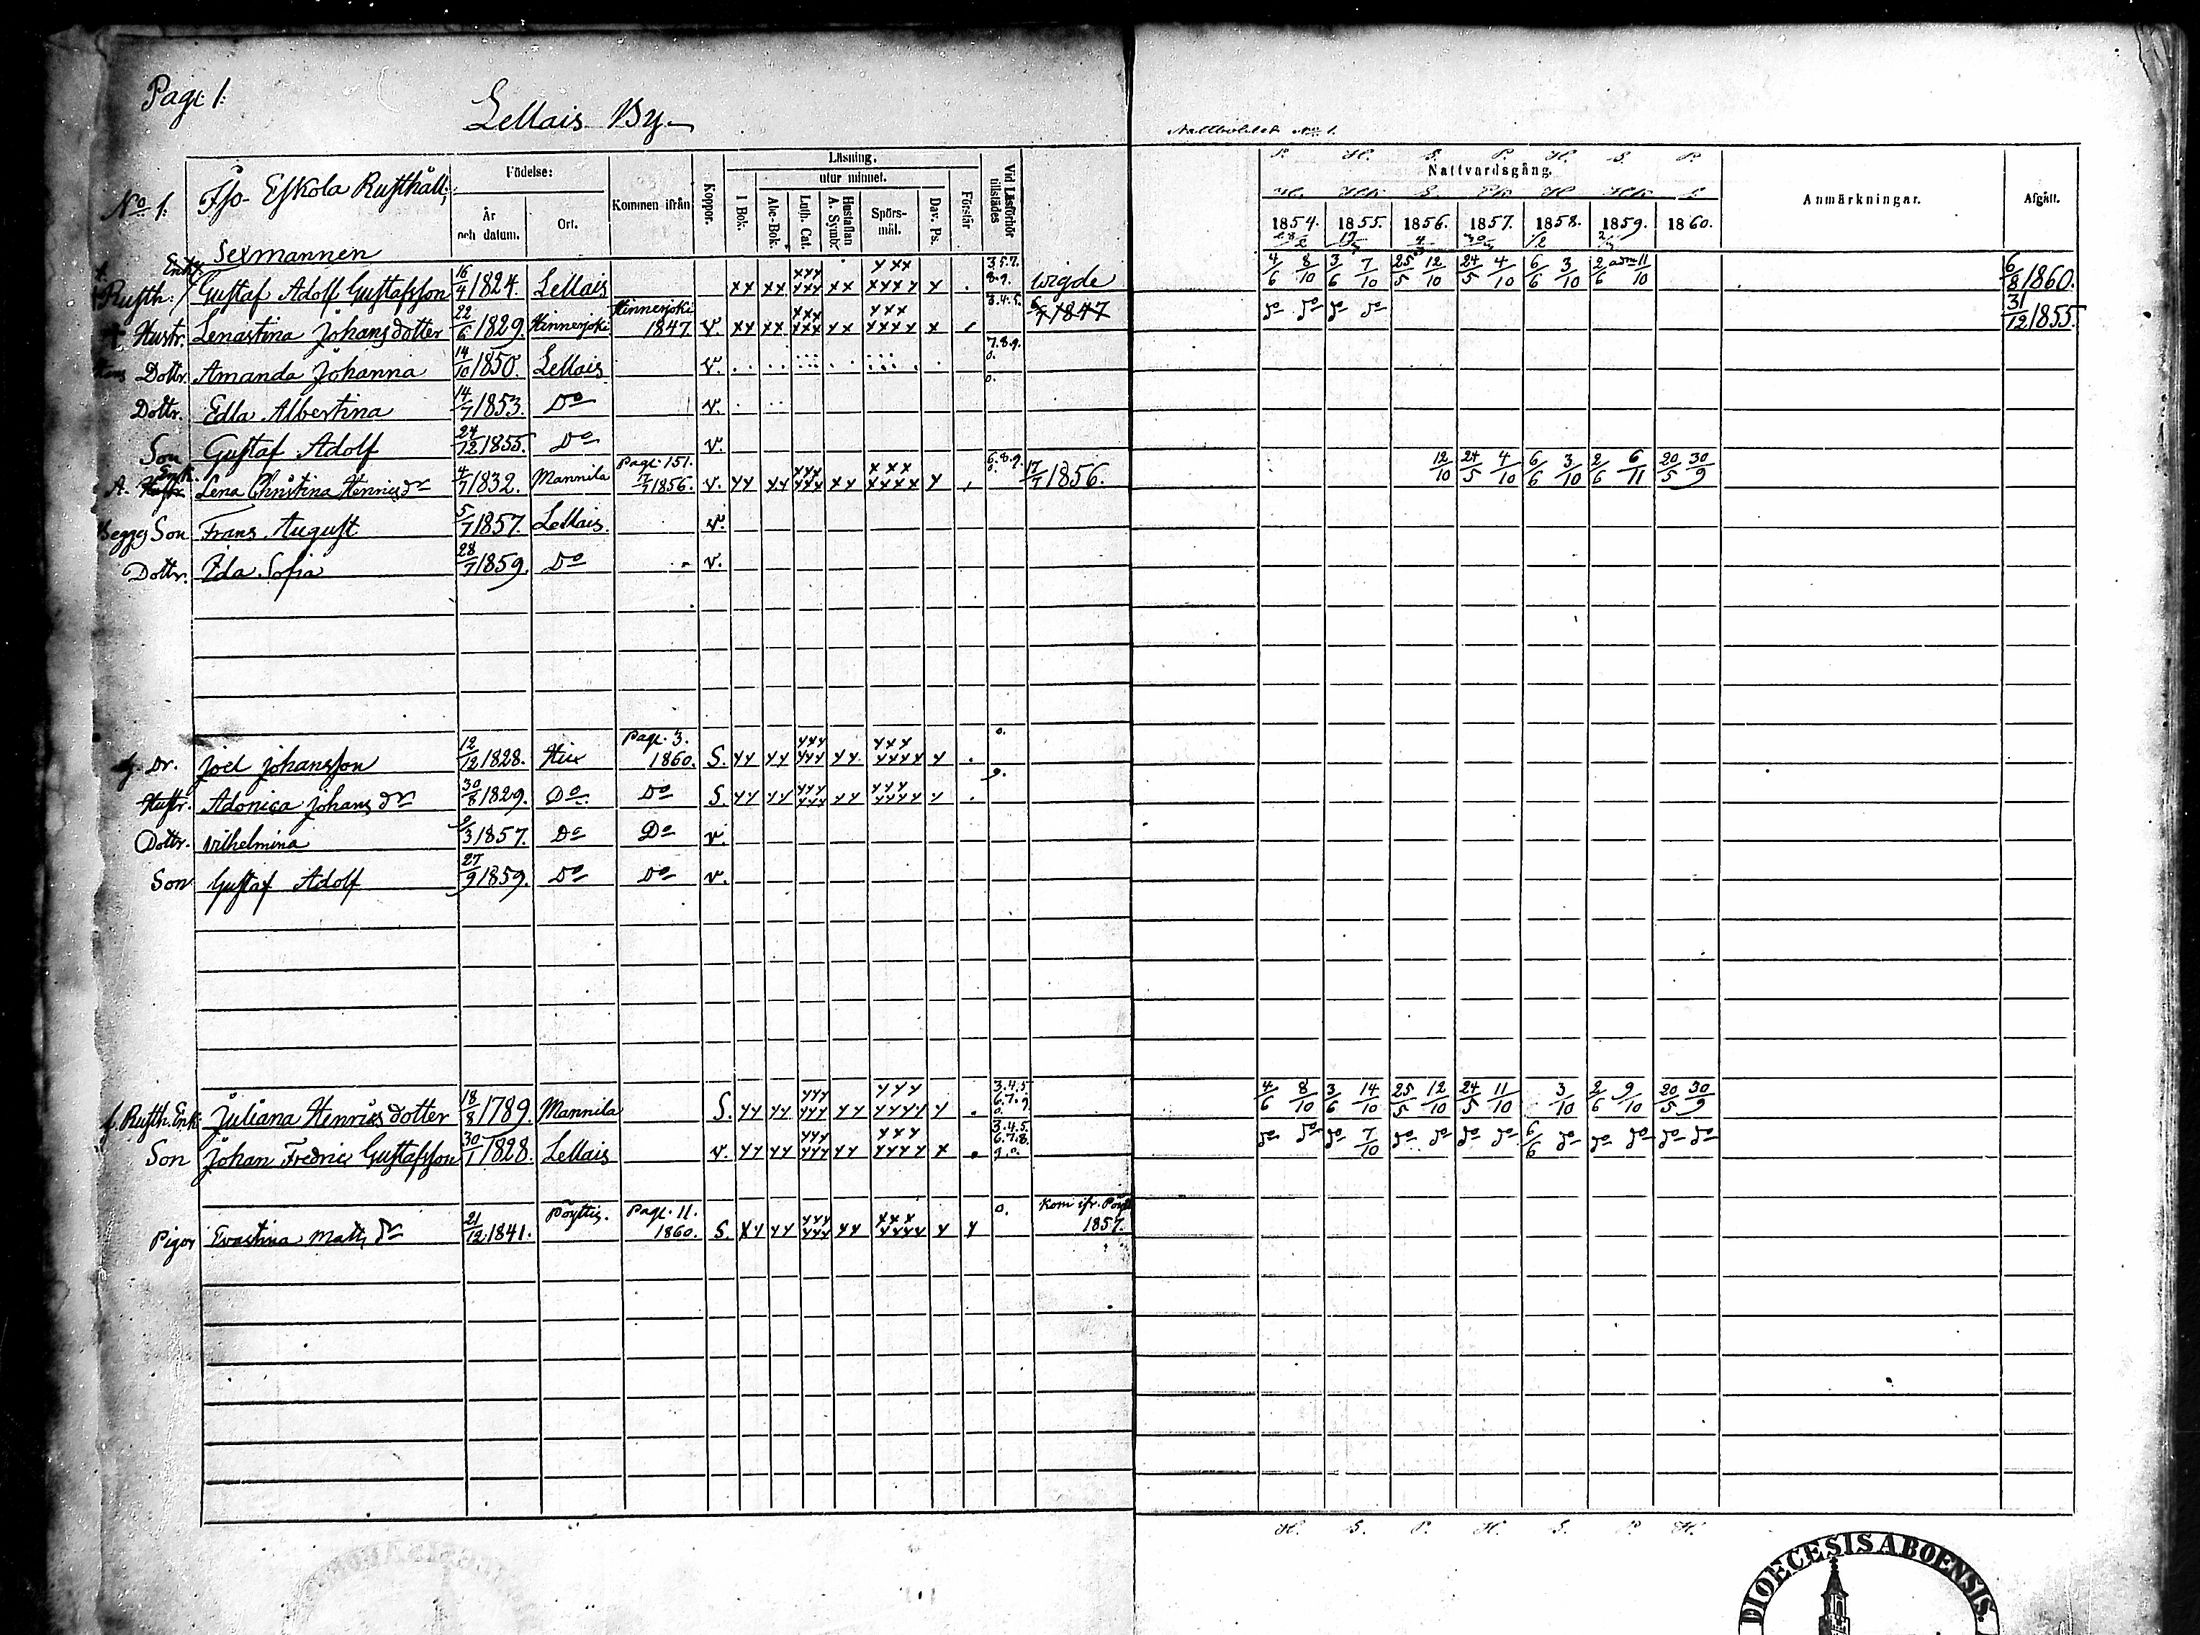 Pag: 1.
Lellais By
Nattvardsgång.
No 1. Iso Eskola Rusthåll,
Födelse:
År och datum.
Ort.
Kommen ifrån
Koppor.
Läsning.
utur minnet.
I Bok.
Abc-Bok.
Luth. Cat.
Hustaflan A. Symb.
Spörs-mål.
Dav. Ps.
Förstår
Vid Läsförhör tillstädes
1854. 1855. 1856. 1857. 1858. 1859. 1860.
Anmärkningar.
Afgått.
Sexmannen
Rusth: Gustaf Adolf Gustafsson 16/4 1824. Lellais xx xx xxx xxx xx xxx xxxx x . 3.5.7. 8.9. wigde 4/6 8/10 3/6 7/10 25/5 12/10 24/5 4/10 6/6 3/10 2/6 11/10 6/8 1860.
+ Hustr. Lenastina Johansdotter 22/6 1829. Hinnerjoki Hinnerjoki 1847. v. xx xx xxx xxx xx xxx xxxx x 3.4.5. 1847 do do do do 31/12 1855.
Dottr. Amanda Johanna 14/10 1850. Lellais v. 7.8.9. 0.
Dottr. Edla Albertina 14/7 1853. Do v. 0.
Son Gustaf Adolf 24/12 1855. Do v.
Enk. Hustr. Lena Christina Henricsdr 4/7 1832. Mannila Pag. 151. 1856. v. xx xx xxx xxx xx xxx xxxx x 6.8.9. 0. 17/7 1856. 12/10 24/5 4/10 6/6 3/10 2/6 6/11 20/5 30/9
Begges Son Frans August 5/7 1857. Lellais. v.
Dottr. Ida Sofia 28/7 1859. Do v.
Dr. Joel Johansson 12/12 1828. Pag. 3. 1860. S. xx xx xxx xxx xx xxx xxxx x . 0.
Hustr. Adonica Johansdr 30/8 1829. Do Do S. xx xx xxx xxx xx xxx xxxx x . 9.
Dottr. Vilhelmina 9/3 1857. Do Do v.
Son Gustaf Adolf 27/9 1859. Do Do v.
f. Rusth. Enk. Juliana Henricsdotter 18/8 1789. Mannila S. xx xx xxx xxx xx xxx xxxx x . 3.4.5. 6.7.9. 0. 4/6 8/10 3/6 14/10 25/5 12/10 24/5 11/10 3/10 2/6 9/10 20/5 30/9
Son Johan Fredric Gustafsson 30/1 1828. Lellais v. xx xx xxx xxx xx xxx xxxx x . 3.4.5. 6.7.8. 9.0. do do do 7/10 do do do do 6/6 do do do do do
Pigor Evastina Matts dr 21/12 1841. Pöyttis. Pag. 11. 1860. S. xx xx xxx xxx xx xxx xxxx x x 0. Kom ifr. 1857.
H. S. P. H. S. P. H.
DIOECESIS ABOENSIS.